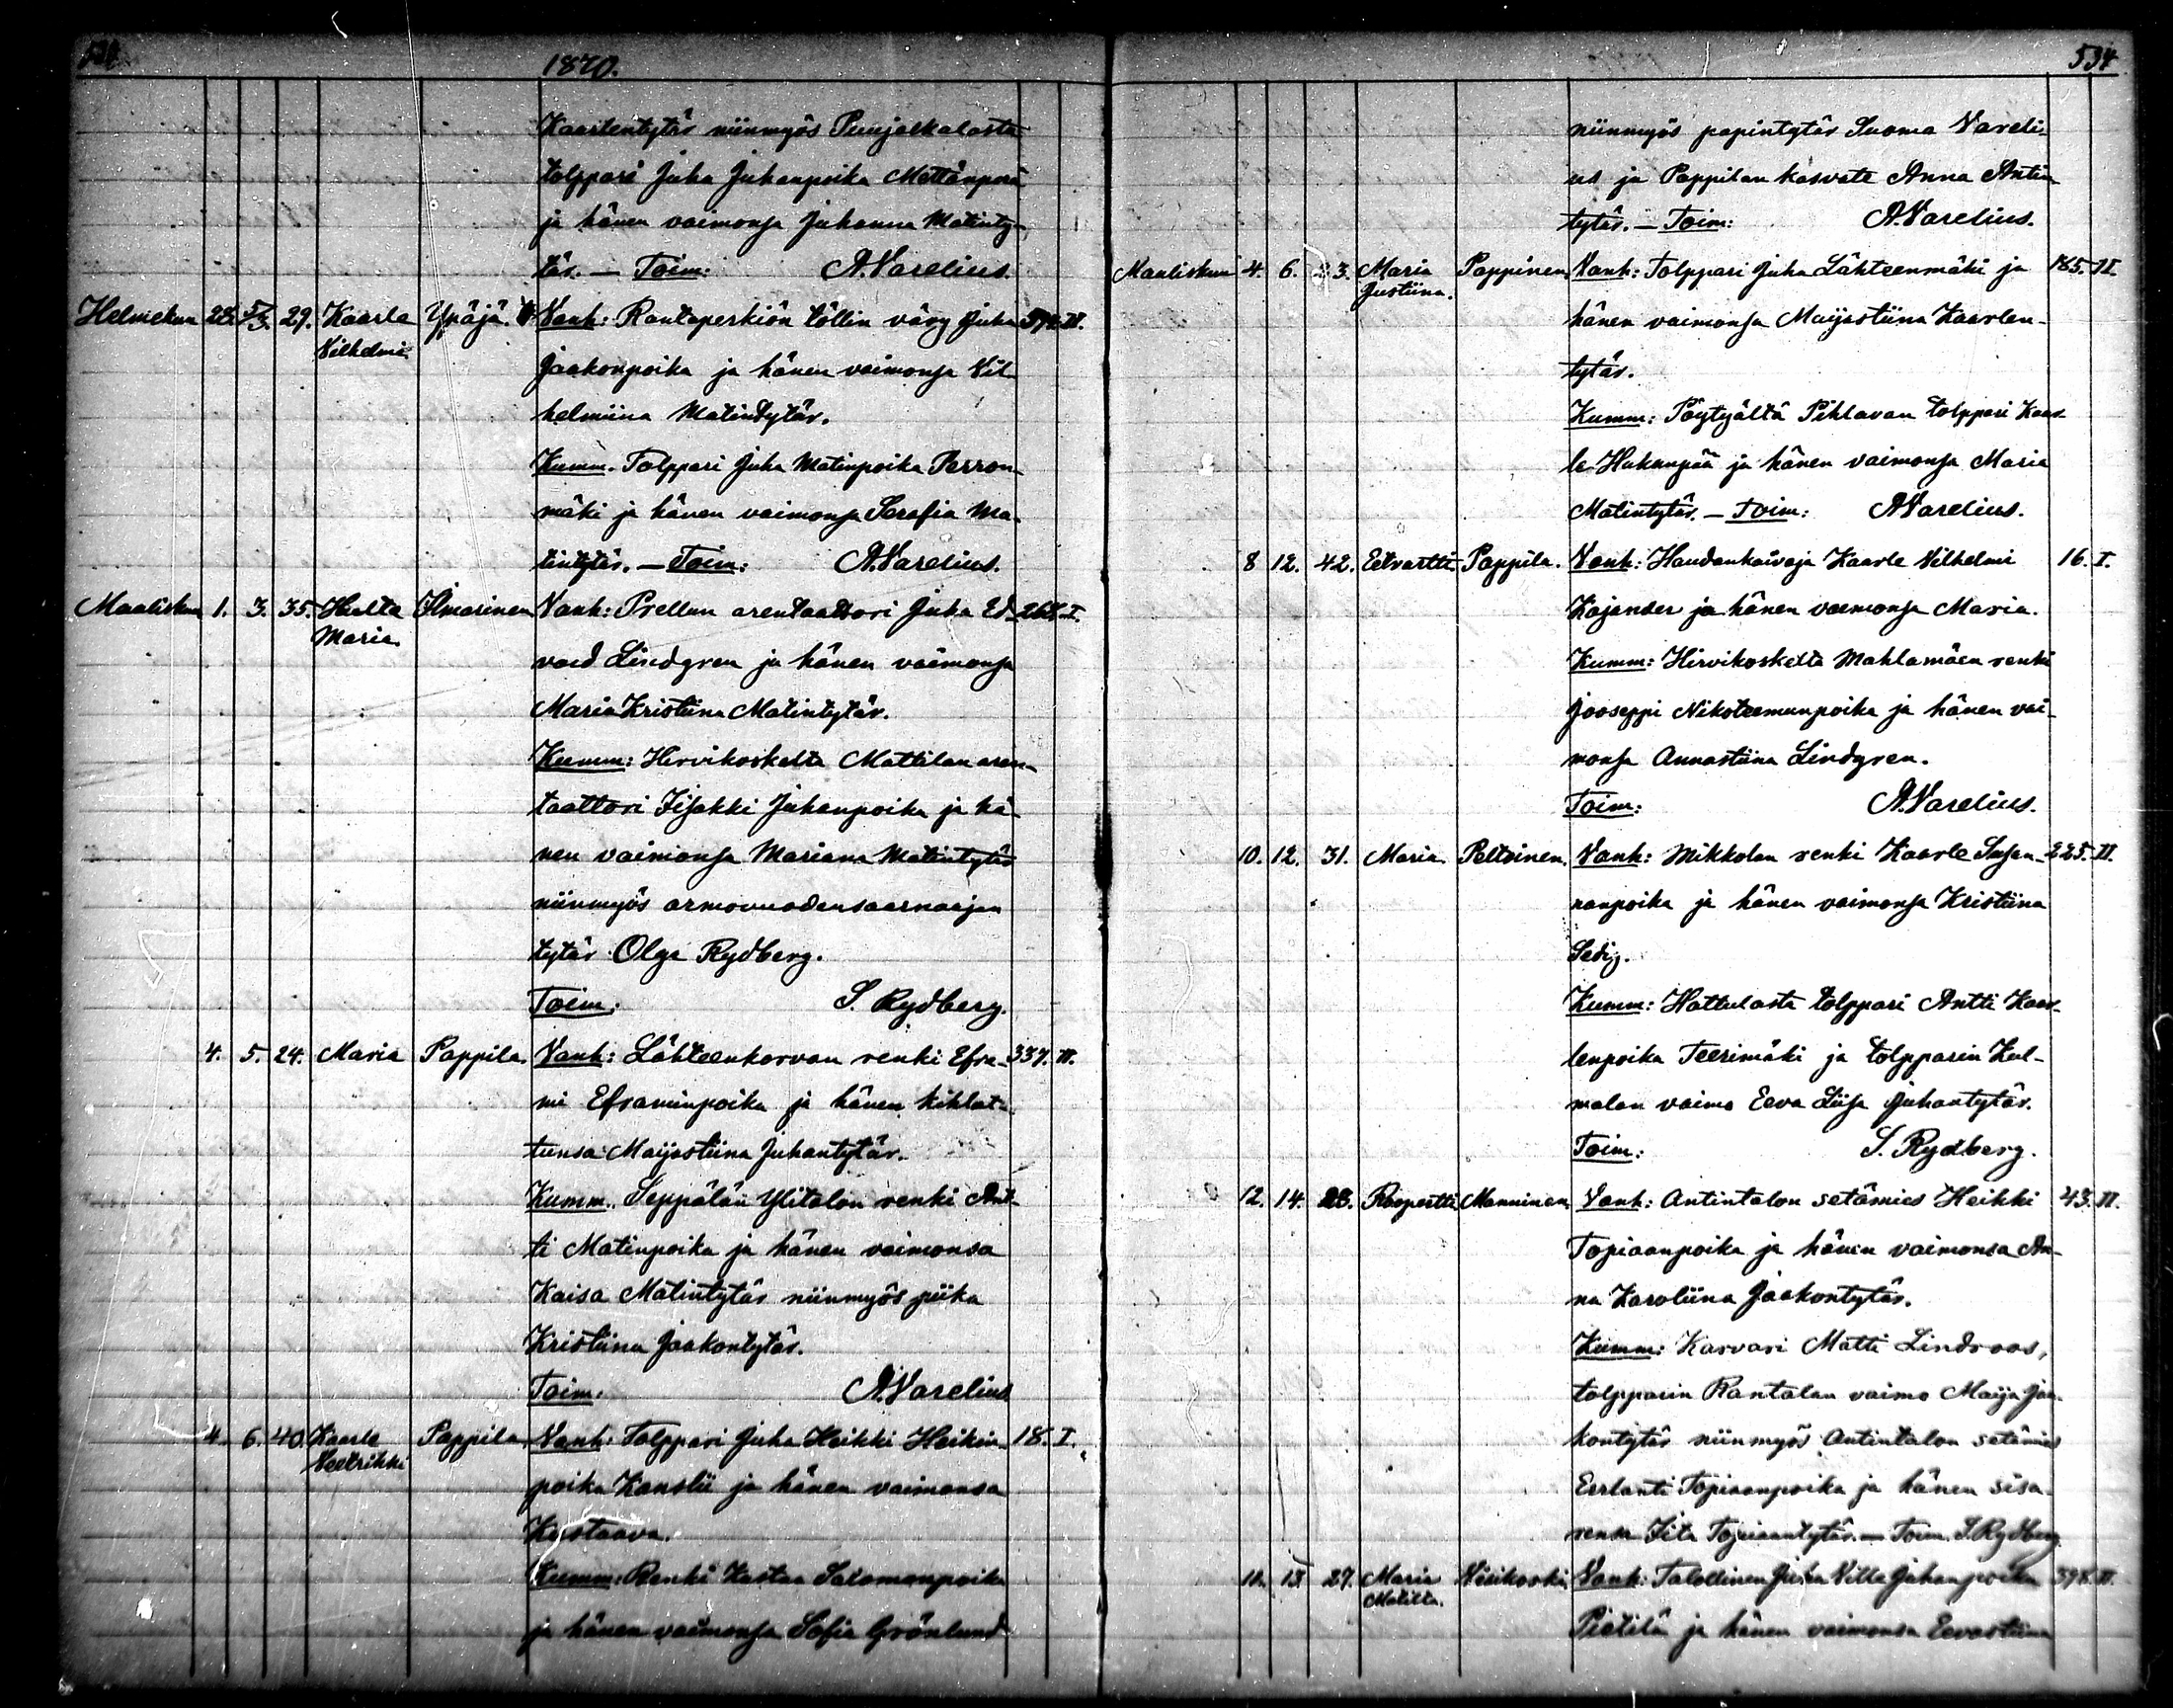 1870.
Kaarlentytär niinmyös Puujalkalasta
tolppari Juha Juhanpoika Mettänperä
ja hänen vaimonsa Juhanna Matinty-
tär. — Toim: A. Varelius.
Helmekuu 28. 5/3. 29. Kaarle Ypäjä. Vanh: Rantaperkiön töllin väry Juha II.
Vilhelmi
Jaakonpoika ja hänen vaimonsa Vil-
helmiina Matindytär.
Kumm. Tolppari Juha Matinpoika Parron-
mäki ja hänen vaimonsa Serafia Ma-
tintytär. — Toim: A. Varelius.
Maaliskuu 1. 3. 35. Hulta Ilmarinen Vanh: Prellun arentaattori Juha Ed- 268. I.
Maria
vard Lindgren ja hänen vaimonsa
Maria Kristiina Matintytär.
Kumm: Hirvikoskelta Mattilan aren-
taattori Iisakki Juhanpoika ja hä-
nen vaimonsa Mariana Matintytär
niinmyös armovuodensaarnaajan
tytär Olga Rydberg.
Toim: S. Rydberg.
4. 5. 24. Maria Pappila. Vanh: Lähteenkorvan renki Efra- 337. II.
mi Eframinpoika ja hänen kihlat-
tunsa Maijastiina Juhantytär.
Kumm. Seppälän Ylitalon renki Ant-
ti Matinpoika ja hänen vaimonsa
Kaisa Matintytär niinmyös piika
Kristiina Jaakontytär.
Toim: A. Varelius
4. 6. 40. Kaarle Pappila Vanh: Tolppari Juha Heikki Heikin- 18. I.
Veetrikki
poika Kanslii ja hänen vaimonsa
Kustaava.
Kumm: Renki Kustaa Salomonpoika
ja hänen vaimonsa Sofia Grönlund
534
niinmyös papintytär Suoma Vareli-
us ja Pappilan kasvate Anna Antin-
tytär. — Toim: A. Varelius.
Maaliskuu 4. 6. 3. Maria Pappinen Vanh: Tolppari Juha Lähteenmäki ja 185. II.
Justiina.
hänen vaimonsa Maijastiina Kaarlen-
tytär.
Kumm: Pöytyältä Pihlavan tolppari Kaar-
le Hakanpää ja hänen vaimonsa Maria
Matintytär. — Toim: A Varelius.
8 12. 42. Eetvartti Pappila. Vanh: Haudankaivaja Kaarle Vilhelmi 16. I.
Kajander ja hänen vaimonsa Maria.
Kumm: Hirvikoskelta Mahlamäen renki
Jooseppi Nikoteemunpoika ja hänen vai-
monsa Annastiina Lindgren.
Toim: A. Varelius.
10. 12. 31. Maria. Peltoinen. Vanh: Mikkolan renki Kaarle Susan- 225. II.
nanpoika ja hänen vaimonsa Kristiina
Sedig.
Kumm: Hattulasta tolppari Antti Kaar-
lenpoika Teerimäki ja tolpparin Kul-
malan vaimo Eeva Liisa Juhantytär.
Toim: S. Rydberg.
12. 14. 28. Roopertti Manninen. Vanh: Antintalon setämies Heikki 43. II.
Topiaanpoika ja hänen vaimonsa An-
na Karoliina Jaakontytär.
Kumm: Karvari Matti Lindroos,
tolpparin Rantalan vaimo Maija Jaa-
kontytär niinmyös Antintalon setämies
Eerlanti Topiaanpoika ja hänen sisa-
rensa Iita Topiaantytär. — Toim. S. Rydberg
11. 13 27. Maria Vanh: Talollinen Juha Ville Juhanpoika II.
Matilta.
Pietilä ja hänen vaimonsa Eevastiina